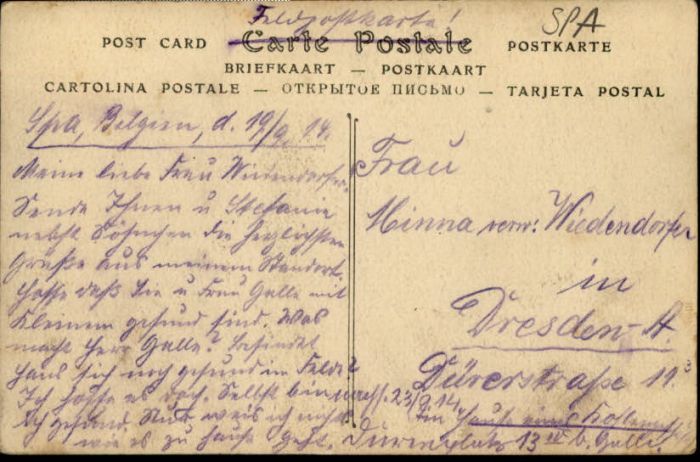 Feldpostkarte!
SPA
POST CARD Carte Postale POSTKARTE
BRIEFKAART — POSTKAART
CARTOLINA POSTALE — ОТКРЫТОЕ ПИСЬМО — TARJETA POSTAL
Spa, Belgien, d. 19/9. 14.
Meine liebe Frau Wiedendorfer.
Sende Ihnen u Stefanie
nebst Söhnchen die herzlichsten
Grüße aus meinem Standort.
Hoffe daß Sie u Frau Galle mit
Kleinem gesund sind. Was
macht Herr Galle? Befindet
Hans sich noch gesund im Felde?
Ich hoffe es doch. Selbst bin
ich gesund. Nur weis ich nicht
wie es zu hause geht.
Frau
Minna verw: Wiedendorfer
in
Dresden-A.
Dürerstraße 11
23/9 14
Dürerplatz 13 b. Galle.